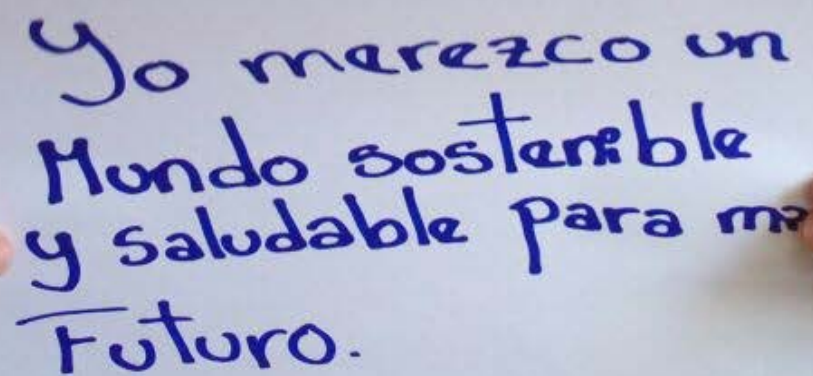 Yo merezco un
Mundo sostenible
y saludable para mi
Futuro.